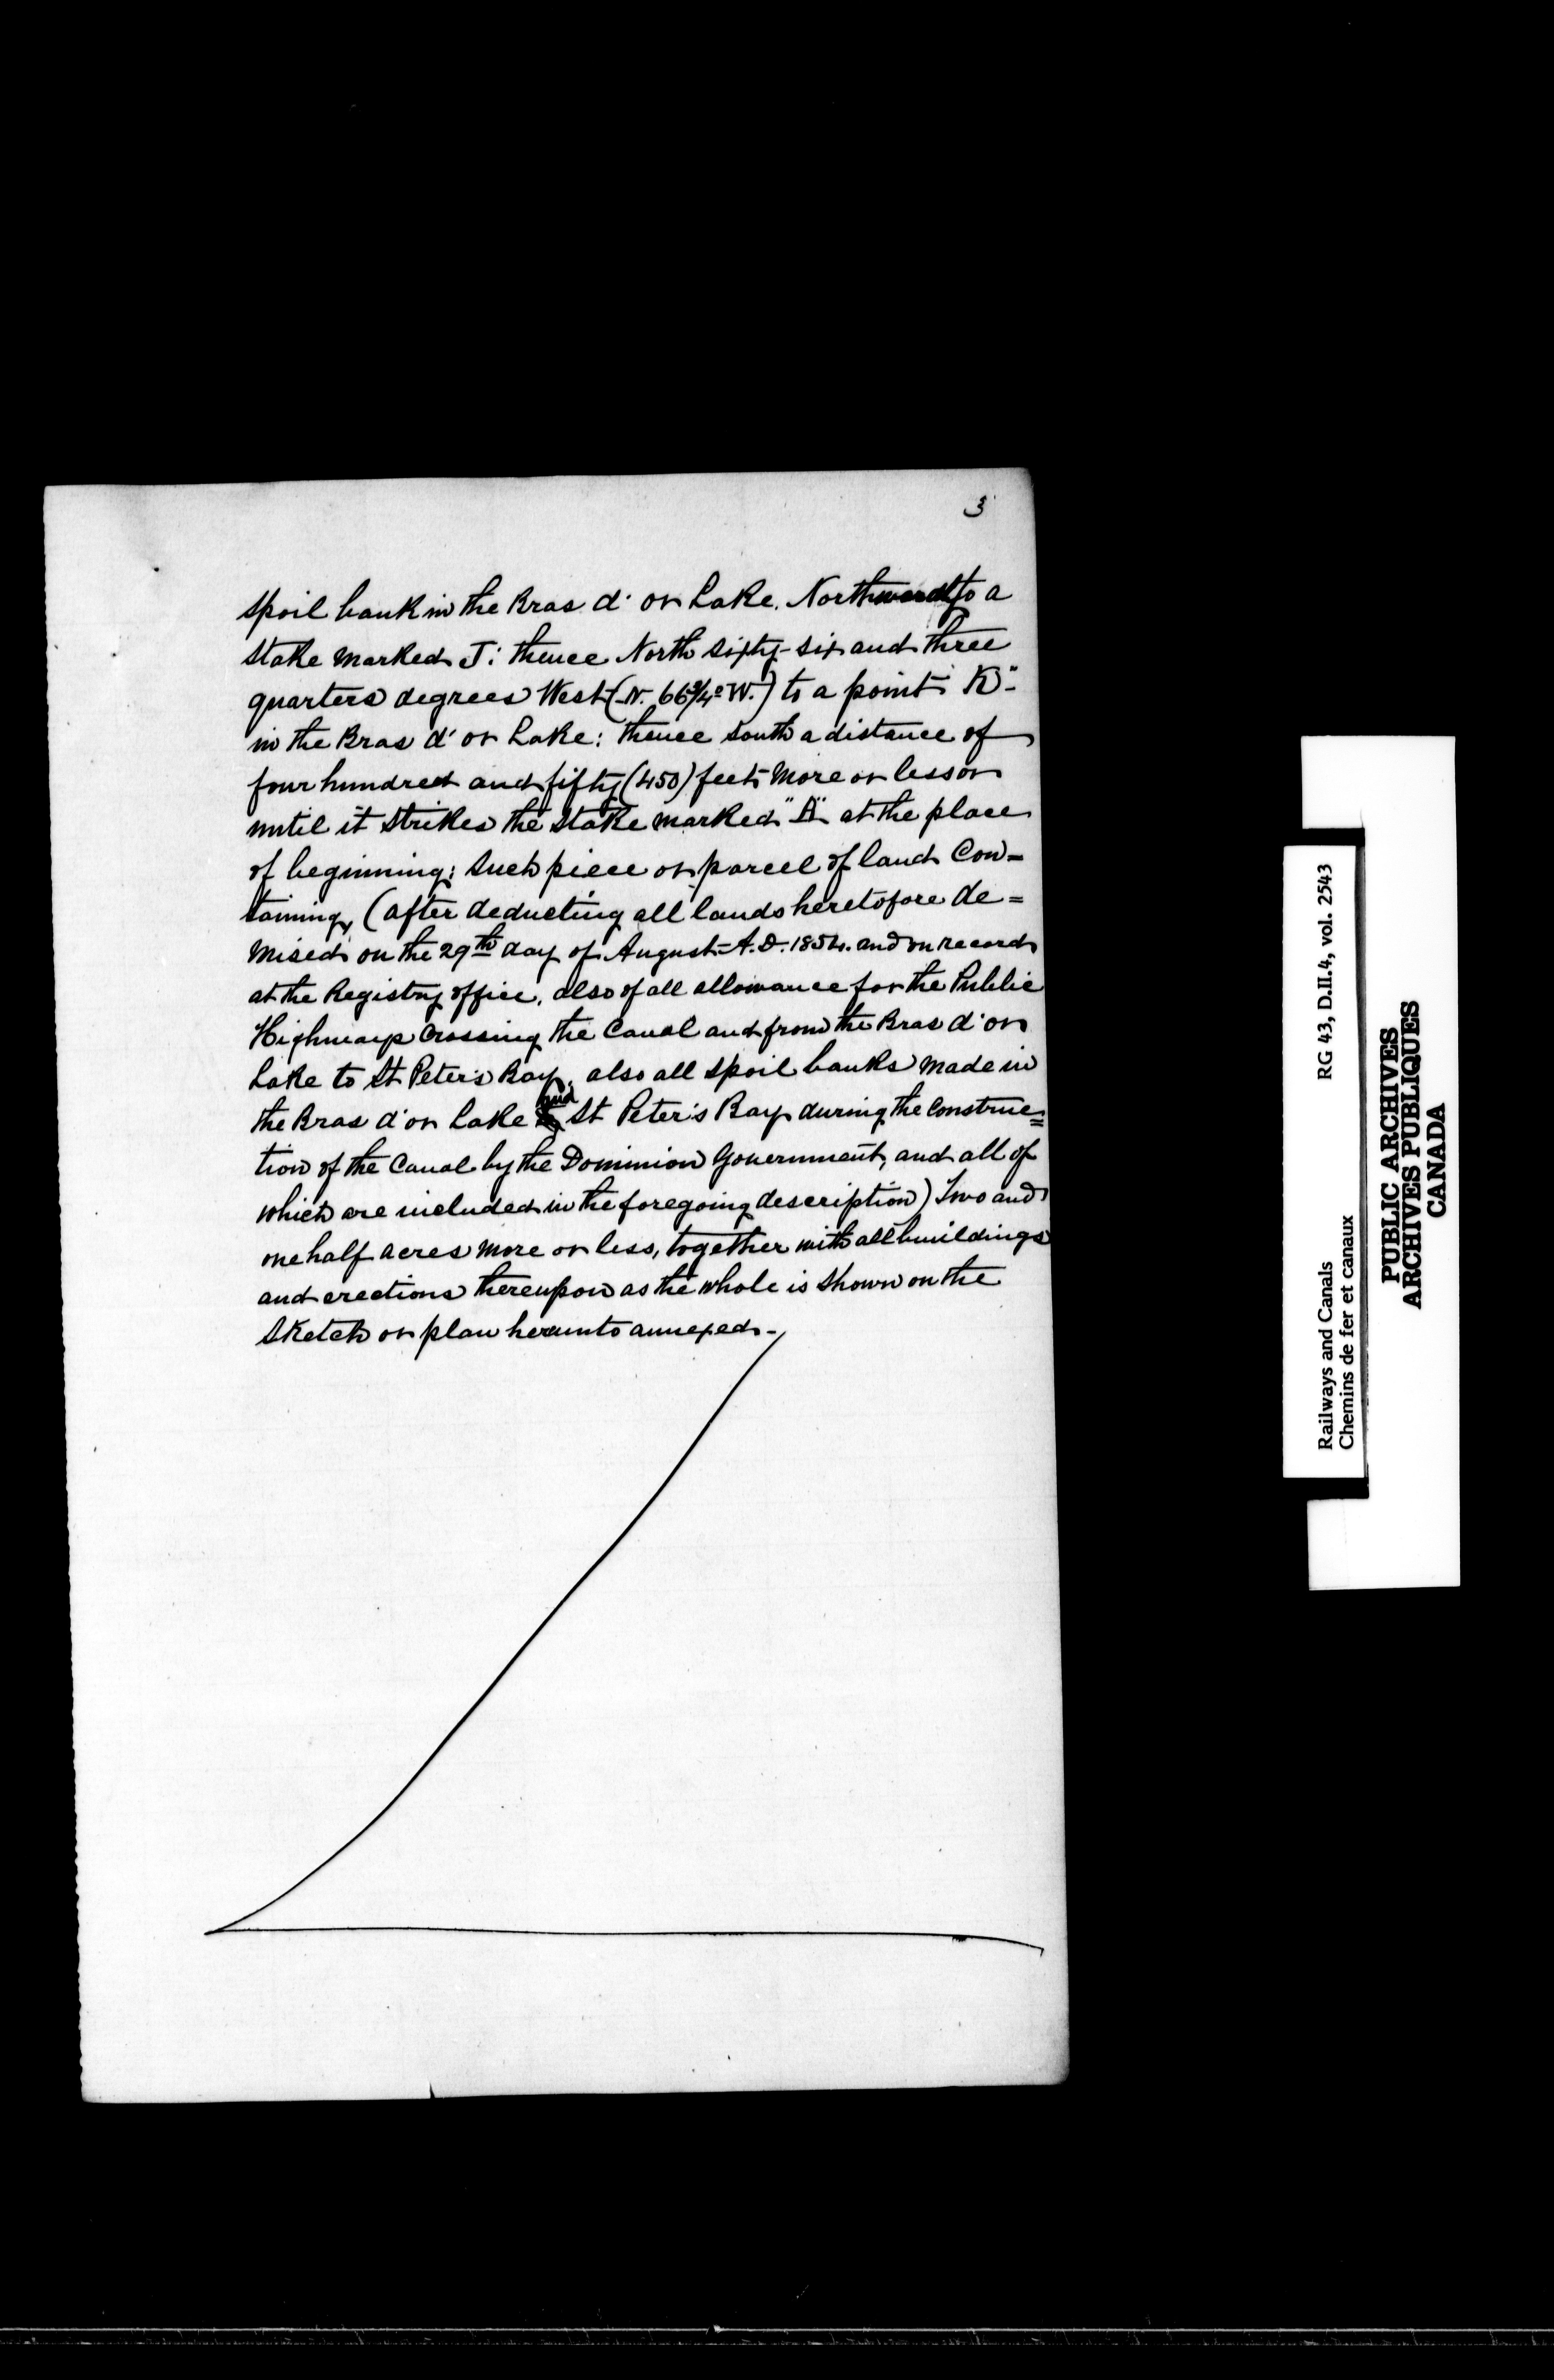 3
spoil bank in the Bras d' or Lake. Northward to a
stake marked J: thence North sixty-six and three
quarters degrees West (N. 66 3/4° W.) to a point "K"-
in the Bras d' or Lake: thence south a distance of
four hundred and fifty (450) feet more or less or
until it strikes the stake marked "A" at the place
of beginning: such piece or parcel of land Con=
taining, (after deducting all lands heretofore de=
mised on the 29th day of August A.D. 1854. and on record
at the Registry office, also of all allowance for the Public
Highway crossing the Canal and from the Bras d' or
Lake to St Peter's Bay, also all spoil banks made in
the Bras d' or Lake and St Peter's Bay during the Construc=
tion of the Canal by the Dominion Government, and all of
which are included in the foregoing description) Two and
one half acres more or less, together with all buildings
and erections thereupon as the whole is shown on the
sketch or plan hereunto annexed.-
Railways and Canals RG 43, D.II.4, vol. 2543
Chemins de fer et canaux
PUBLIC ARCHIVES
ARCHIVES PUBLIQUES
CANADA